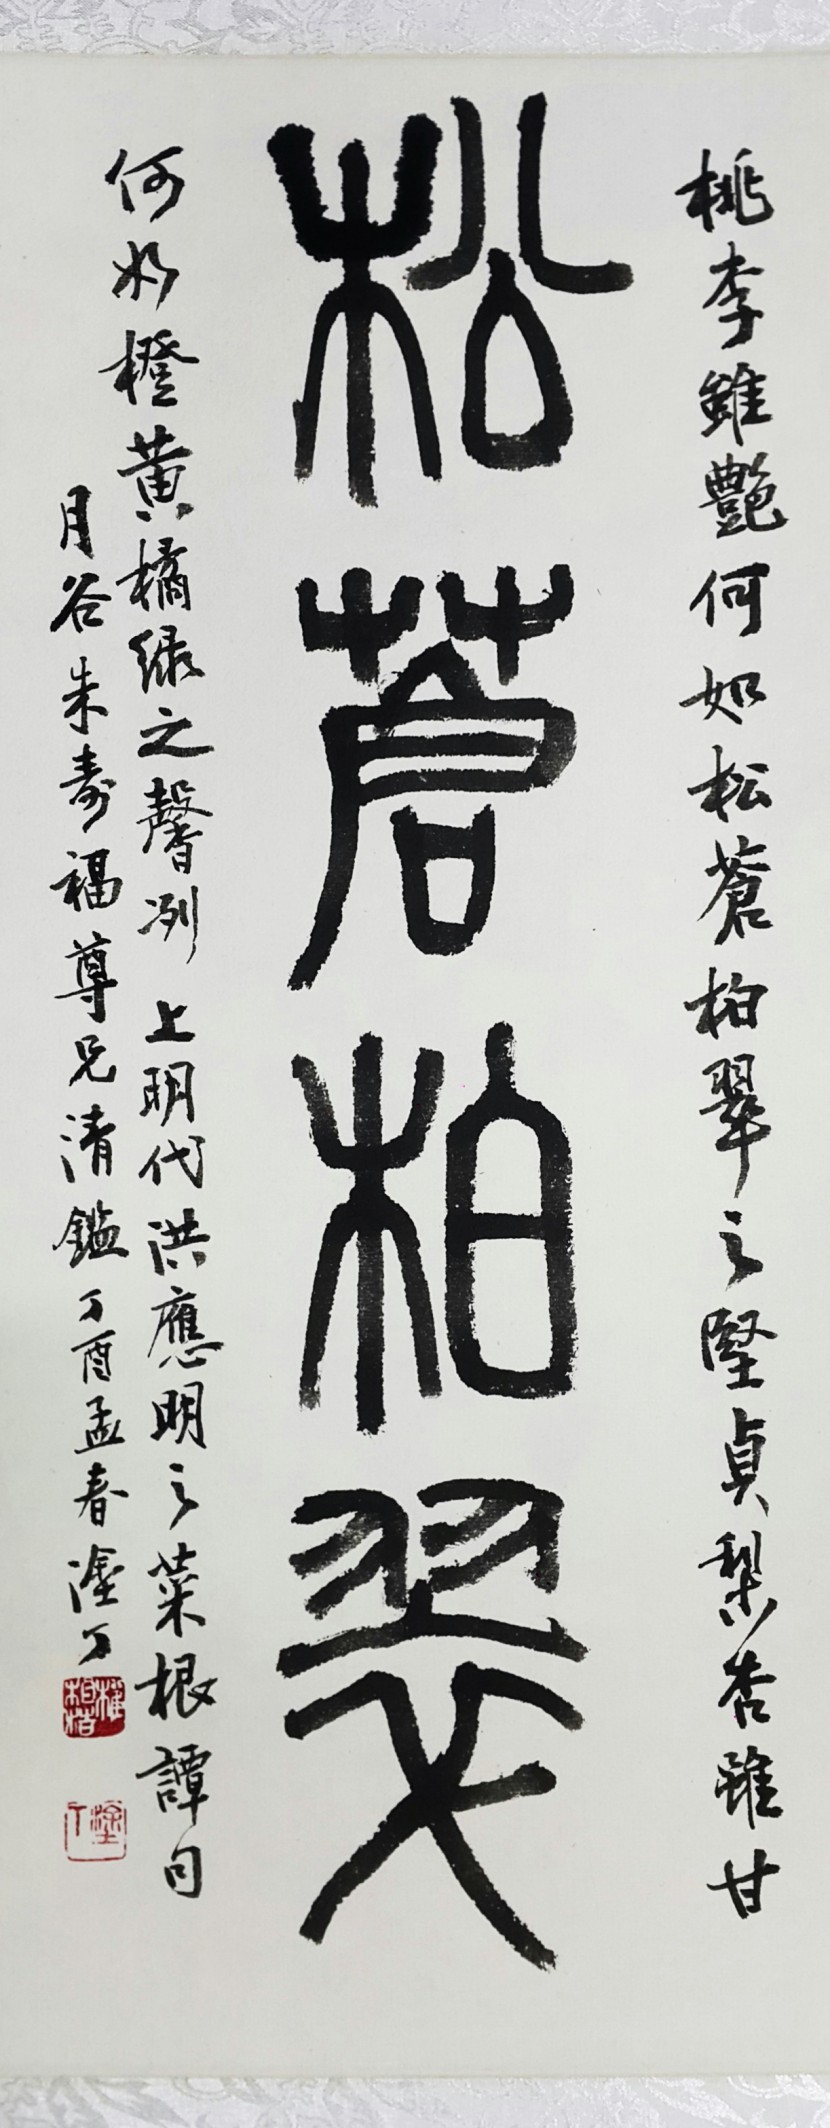 桃李雖艶何如松蒼柏翠之堅貞梨杏雖甘
松蒼柏翠
何如橙黃橘綠之馨冽 上明代洪應明之菜根譚句
月谷朱壽福尊兄清鑑丁酉孟春塗丁
權相浩
塗丁